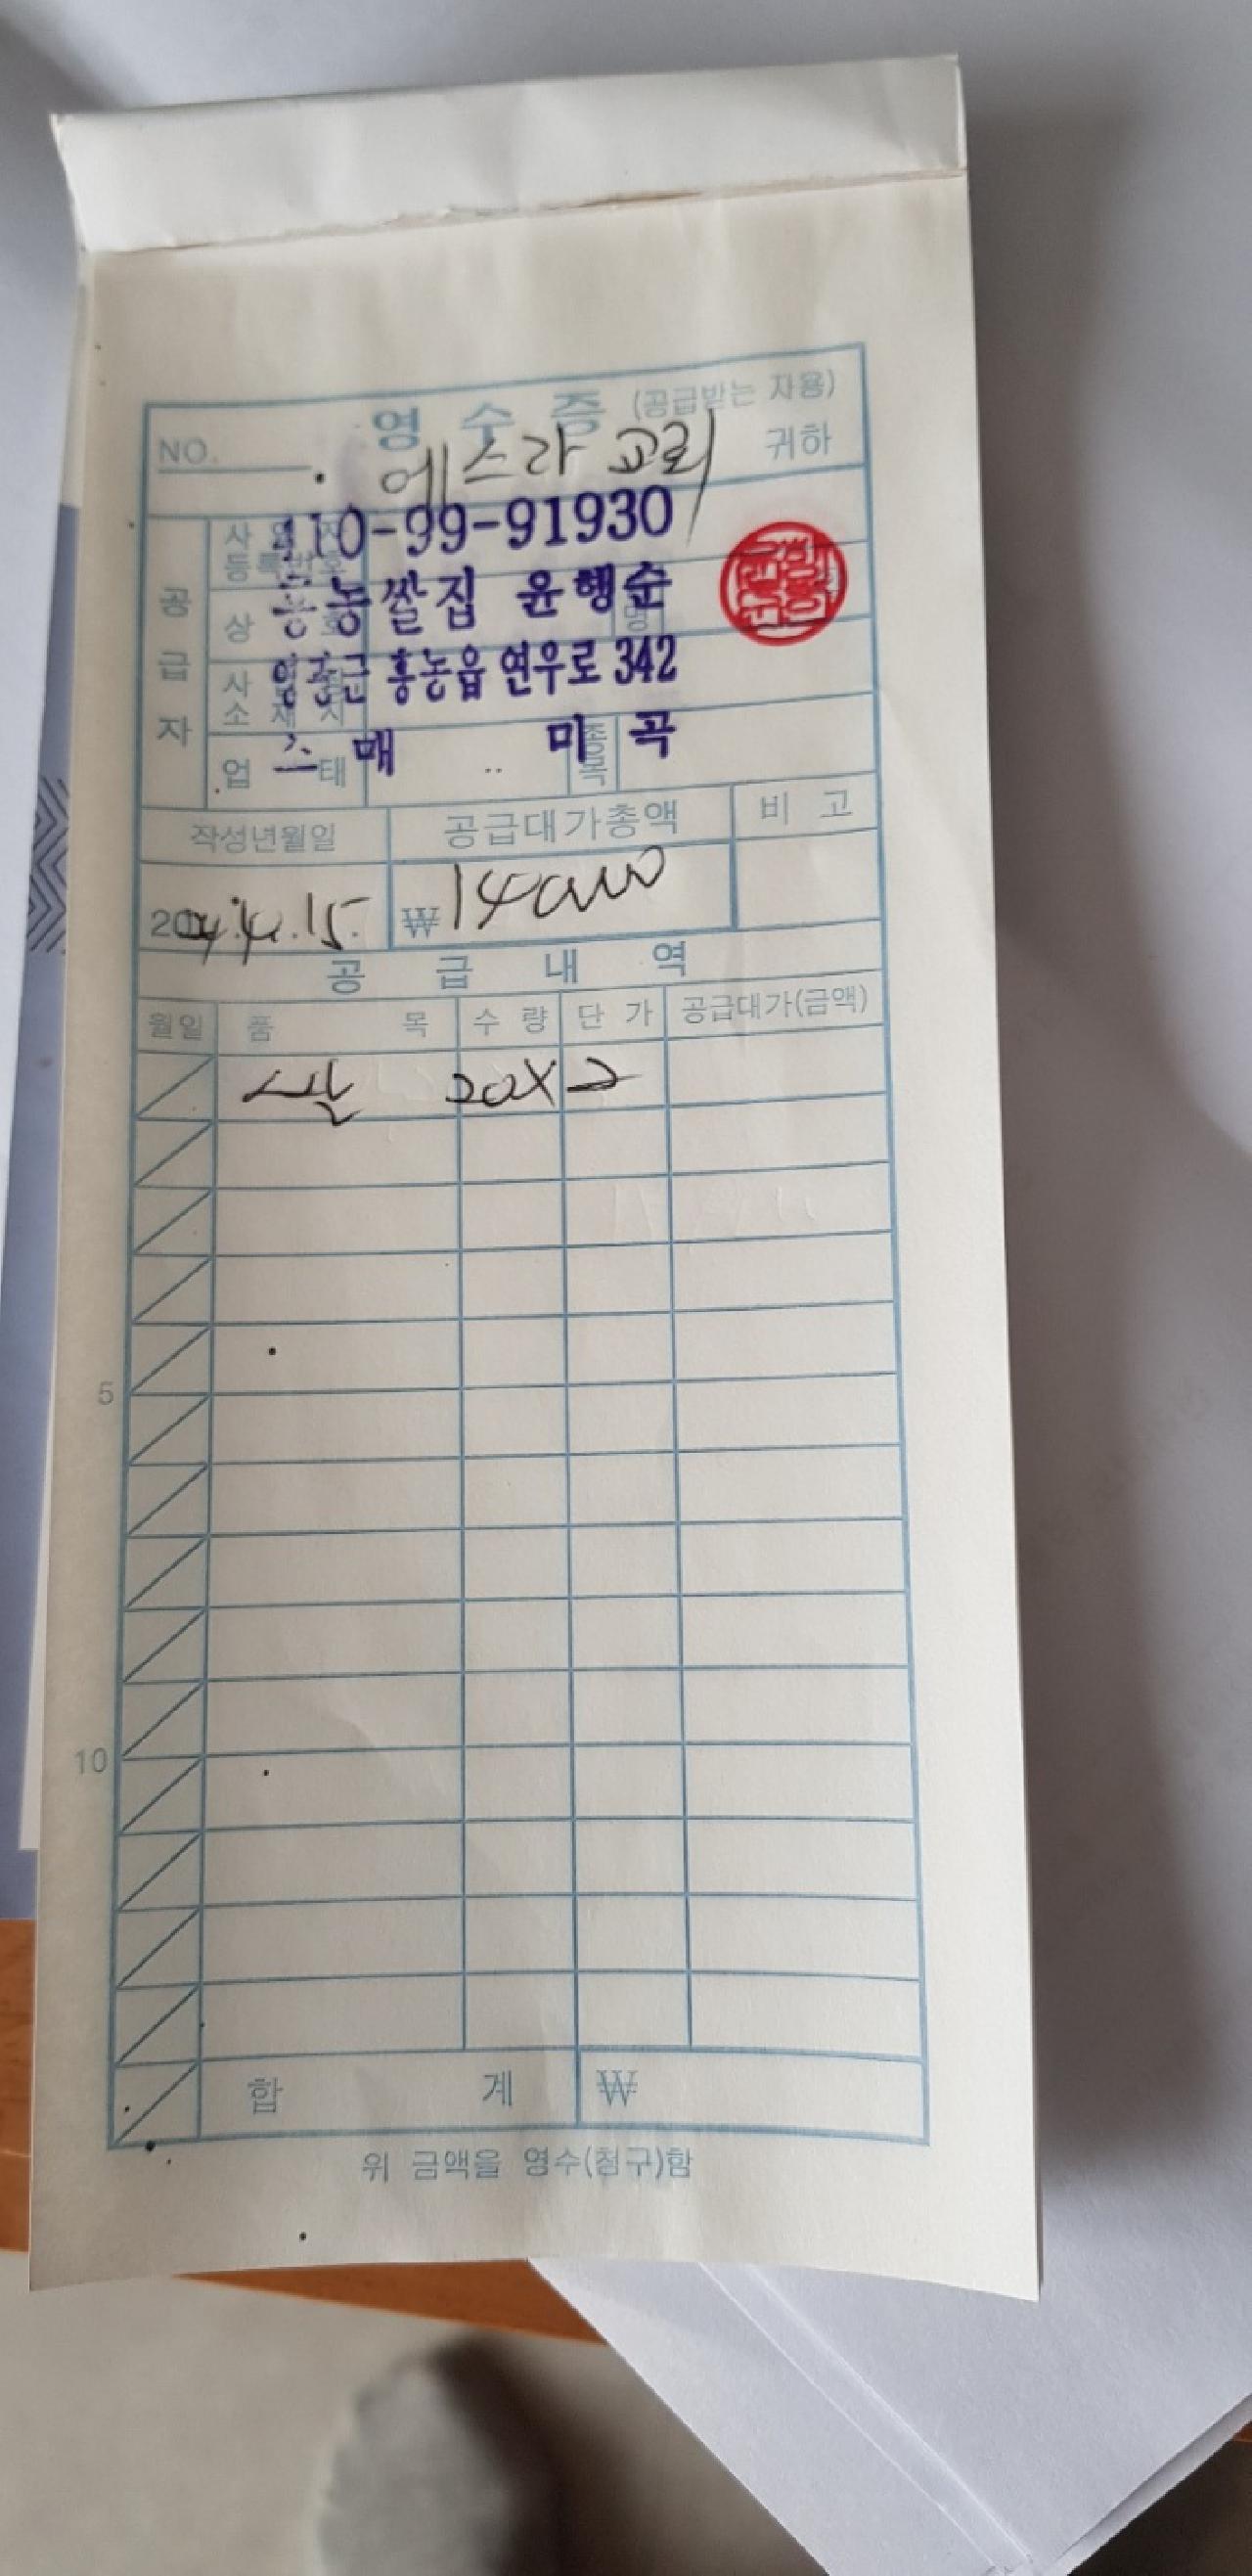 영 수 증 (공급받는 자용)
NO. 에스라 교회 귀하
공급자
사업자등록번호 410-99-91930
상호 홍농쌀집 윤행순 명
사업장소재지 영광군 홍농읍 연우로 342
업태 소매 종목 미곡
작성년월일 공급대가총액 비고
2024.4.15. ₩140000
공 급 내 역
월일 품목 수량 단가 공급대가(금액)
쌀 20X2
5
10
합 계 ₩
위 금액을 영수(청구)함